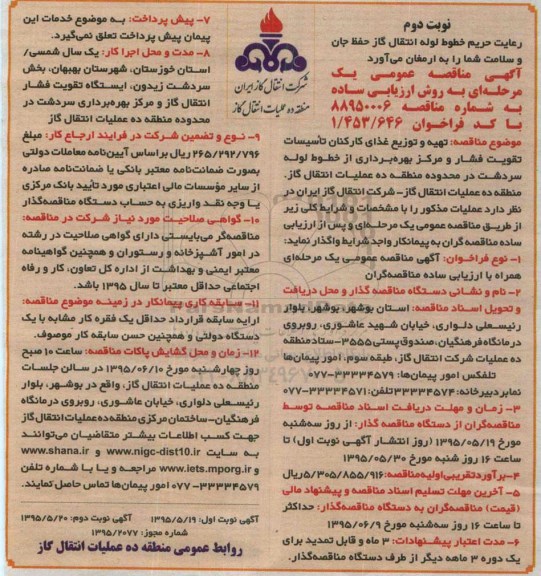 نوبت دوم
رعایت حریم خطوط لوله انتقال گاز حفظ جان
و سلامت شما را به ارمغان می‌آورد
آگهی مناقصه عمومی یک
مرحله‌ای به روش ارزیابی ساده
به شماره مناقصه ۸۸۹۵۰۰۰۶
با کد فراخوان ۱/۴۵۳/۶۴۶
شرکت انتقال گاز ایران
منطقه ده عملیات انتقال گاز
موضوع مناقصه: تهیه و توزیع غذای کارکنان تأسیسات
تقویت فشار و مرکز بهره‌برداری از خطوط لوله
سردشت در محدوده منطقه ده عملیات انتقال گاز.
منطقه ده عملیات انتقال گاز- شرکت انتقال گاز ایران در
نظر دارد عملیات مذکور را با مشخصات و شرایط کلی زیر
از طریق مناقصه عمومی یک مرحله‌ای و پس از ارزیابی
ساده مناقصه گران به پیمانکار واجد شرایط واگذار نماید:
۱- نوع فراخوان: آگهی مناقصه عمومی یک مرحله‌ای
همراه با ارزیابی ساده مناقصه‌گران
۲- نام و نشانی دستگاه مناقصه گذار و محل دریافت
و تحویل اسناد مناقصه: استان بوشهر، بوشهر، بلوار
رئیسعلی دلواری، خیابان شهید عاشوری، روبروی
درمانگاه فرهنگیان، صندوق پستی ۳۵۵۵- ستاد منطقه
ده عملیات شرکت انتقال گاز، طبقه سوم، امور پیمان‌ها
تلفکس امور پیمان‌ها: ۳۳۳۳۴۵۷۹-۰۷۷
نمابر دبیرخانه: ۳۳۳۳۴۵۷۴ تلفن: ۳۳۳۳۴۵۷۱-۰۷۷
۳- زمان و مهلت دریافت اسناد مناقصه توسط
مناقصه‌گران از دستگاه مناقصه گذار: از روز سه‌شنبه
مورخ ۱۳۹۵/۰۵/۱۹ (روز انتشار آگهی نوبت اول) تا
ساعت ۱۶ روز شنبه مورخ ۱۳۹۵/۰۵/۳۰
۴- برآورد تقریبی اولیه مناقصه: ۵/۳۰۵/۸۵۵/۹۱۶ ریال
۵- آخرین مهلت تسلیم اسناد مناقصه و پیشنهاد مالی
(قیمت) مناقصه‌گران به دستگاه مناقصه‌گذار: حداکثر
تا ساعت ۱۶ روز سه‌شنبه مورخ ۱۳۹۵/۰۶/۹
۶- مدت اعتبار پیشنهادات: ۳ ماه و قابل تمدید برای
یک دوره ۳ ماهه دیگر از طرف دستگاه مناقصه‌گذار.
۷- پیش پرداخت: به موضوع خدمات این
پیمان پیش پرداخت تعلق نمی‌گیرد.
۸- مدت و محل اجرا کار: یک سال شمسی/
استان خوزستان، شهرستان بهبهان، بخش
سردشت زیدون، ایستگاه تقویت فشار
انتقال گاز و مرکز بهره‌برداری سردشت در
محدوده منطقه ده عملیات انتقال گاز
۹- نوع و تضمین شرکت در فرایند ارجاع کار: مبلغ
۲۶۵/۲۹۲/۷۹۶ ریال بر اساس آیین‌نامه معاملات دولتی
بصورت ضمانت‌نامه معتبر بانکی یا ضمانت‌نامه صادره
از سایر مؤسسات مالی اعتباری مورد تأیید بانک مرکزی
یا وجه نقد واریزی به حساب دستگاه مناقصه‌گذار
۱۰- گواهی صلاحیت مورد نیاز شرکت در مناقصه:
مناقصه‌گر می‌بایستی دارای گواهی صلاحیت در رشته
در امور آشپزخانه و رستوران و همچنین گواهینامه
معتبر ایمنی و بهداشت از اداره کل تعاون، کار و رفاه
اجتماعی حداقل معتبر تا سال ۱۳۹۵ باشد.
۱۱- سابقه کاری پیمانکار در زمینه موضوع مناقصه:
ارایه سابقه قرارداد حداقل یک فقره کار مشابه با یک
دستگاه دولتی و همچنین حسن سابقه کار موصوف.
۱۲- زمان و محل گشایش پاکات مناقصه: ساعت ۱۰ صبح
روز چهارشنبه مورخ ۱۳۹۵/۰۶/۱۰ در سالن جلسات
منطقه ده عملیات انتقال گاز، واقع در بوشهر، بلوار
رئیسعلی دلواری، خیابان عاشوری، روبروی درمانگاه
فرهنگیان- ساختمان مرکزی منطقه ده عملیات انتقال گاز
جهت کسب اطلاعات بیشتر متقاضیان می‌توانند
به سایت www.nigc-dist10.ir و www.shana.ir
و www.iets.mporg.ir مراجعه و یا با شماره تلفن
۳۳۳۳۴۵۷۹-۰۷۷ امور پیمان‌ها تماس حاصل نمایند.
آگهی نوبت اول: ۱۳۹۵/۵/۱۹ آگهی نوبت دوم: ۱۳۹۵/۵/۲۰
شماره مجوز: ۱۳۹۵/۲۰۷۷
روابط عمومی منطقه ده عملیات انتقال گاز